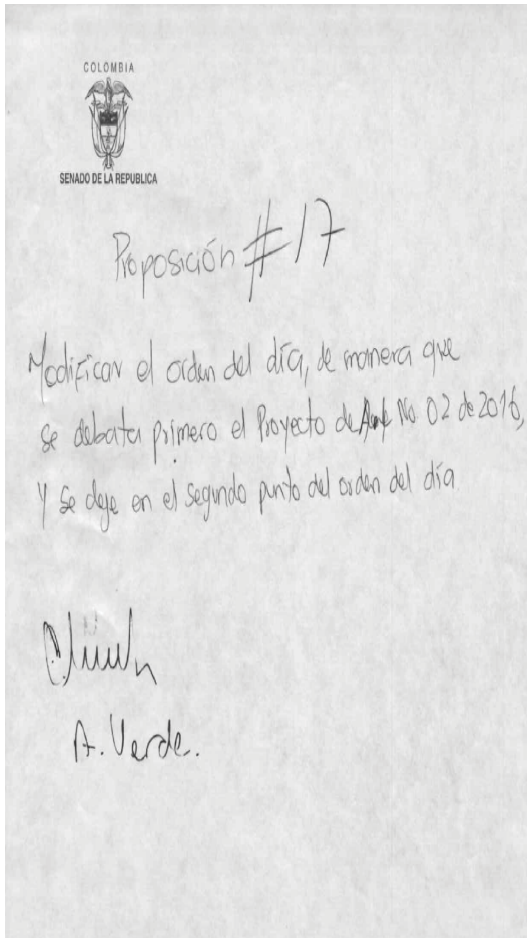 COLOMBIA
SENADO DE LA REPUBLICA
Proposición #17
Modificar el orden del día, de manera que
se debata primero el Proyecto de No 02 de 2016,
y se deje en el segundo punto del orden del día
A. Verde.